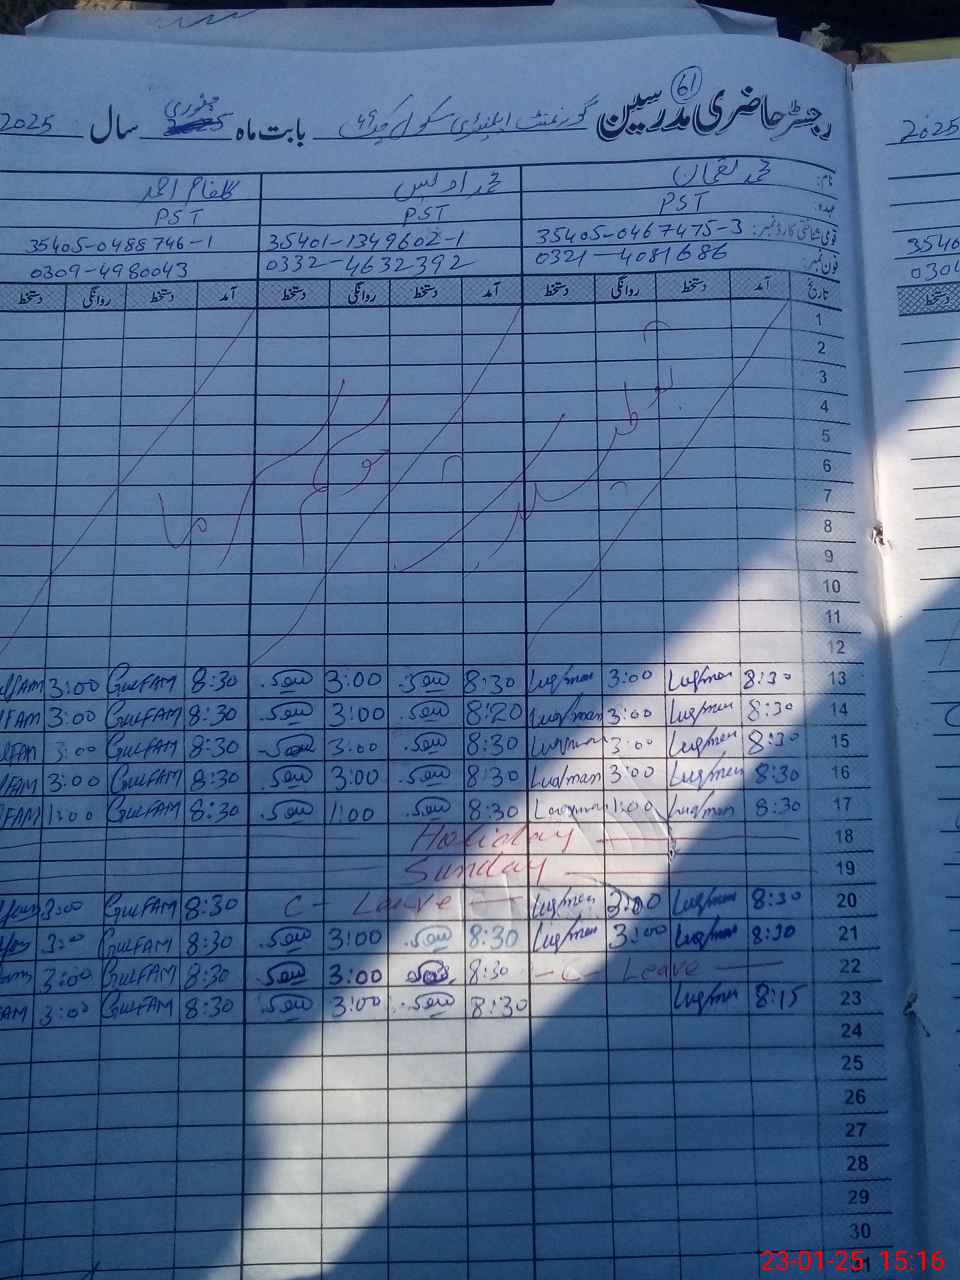 61
رجسٹر حاضری مدرسین گورنمنٹ ایلیمنٹری سکول بابت ماہ جنوری سال 2025
2025
نام: محمد لقمان محمد ادریس گلفام احمد
عہدہ: PST PST PST
قومی شناختی کارڈ نمبر: 35405-0467475-3 35401-1349602-1 35405-0488746-1
فون نمبر: 0321-4081686 0332-4632392 0309-4980043
تاریخ آمد دستخط روانگی دستخط آمد دستخط روانگی دستخط آمد دستخط روانگی دستخط
دستخط
1
2
3
4
5
6
7
8
9
10
11
12
موسم سرما
13 8:30 Luqman 3:00 Luqman 8:30 3:00 8:30 GULFAM 3:00
14 8:30 Luqman 3:00 Luqman 8:20 3:00 8:30 GULFAM 3:00
15 8:30 Luqman 3:00 Luqman 8:30 3:00 8:30 GULFAM 3:00
16 8:30 Luqman 3:00 Luqman 8:30 3:00 8:30 GULFAM 3:00
17 8:30 Luqman 1:00 Luqman 8:30 1:00 8:30 GULFAM 1:00
18 Holiday
19 Sunday
20 8:30 Luqman 3:00 Luqman C - Leave 8:30 GULFAM 3:00
21 8:30 Luqman 3:00 Luqman 8:30 3:00 8:30 GULFAM 3:00
22 - C - Leave 8:30 3:00 8:30 GULFAM 3:00
23 8:15 Luqman 8:30 3:00 8:30 GULFAM 3:00
24
25
26
27
28
29
30
31
23-01-25 15:16